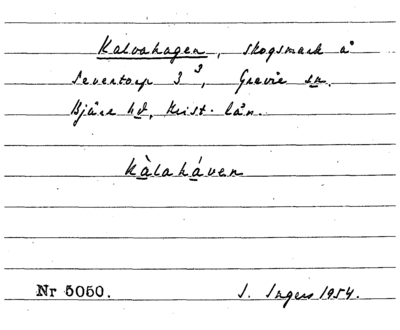 Kalvahagen, skogsmark å
Seventorp 3³, Grevie sn.
Bjäre hd, Krist. län.
Kàlaháven
Nr 5050.
I. Ingers 1954.